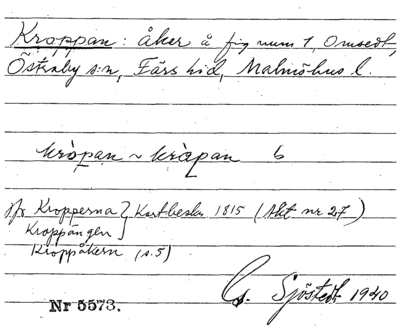 Kroppan: åker å fig num 1, Omsedt,
Östraby s:n, Färs hd, Malmöhus l.
kròpan ~ kràpan 6
jfr Kropperna } Kartbeskr. 1815 (Akt nr 27)
Kroppängen
Kroppåkern (s. 5)
Nr 5573.
G. Sjöstedt 1940